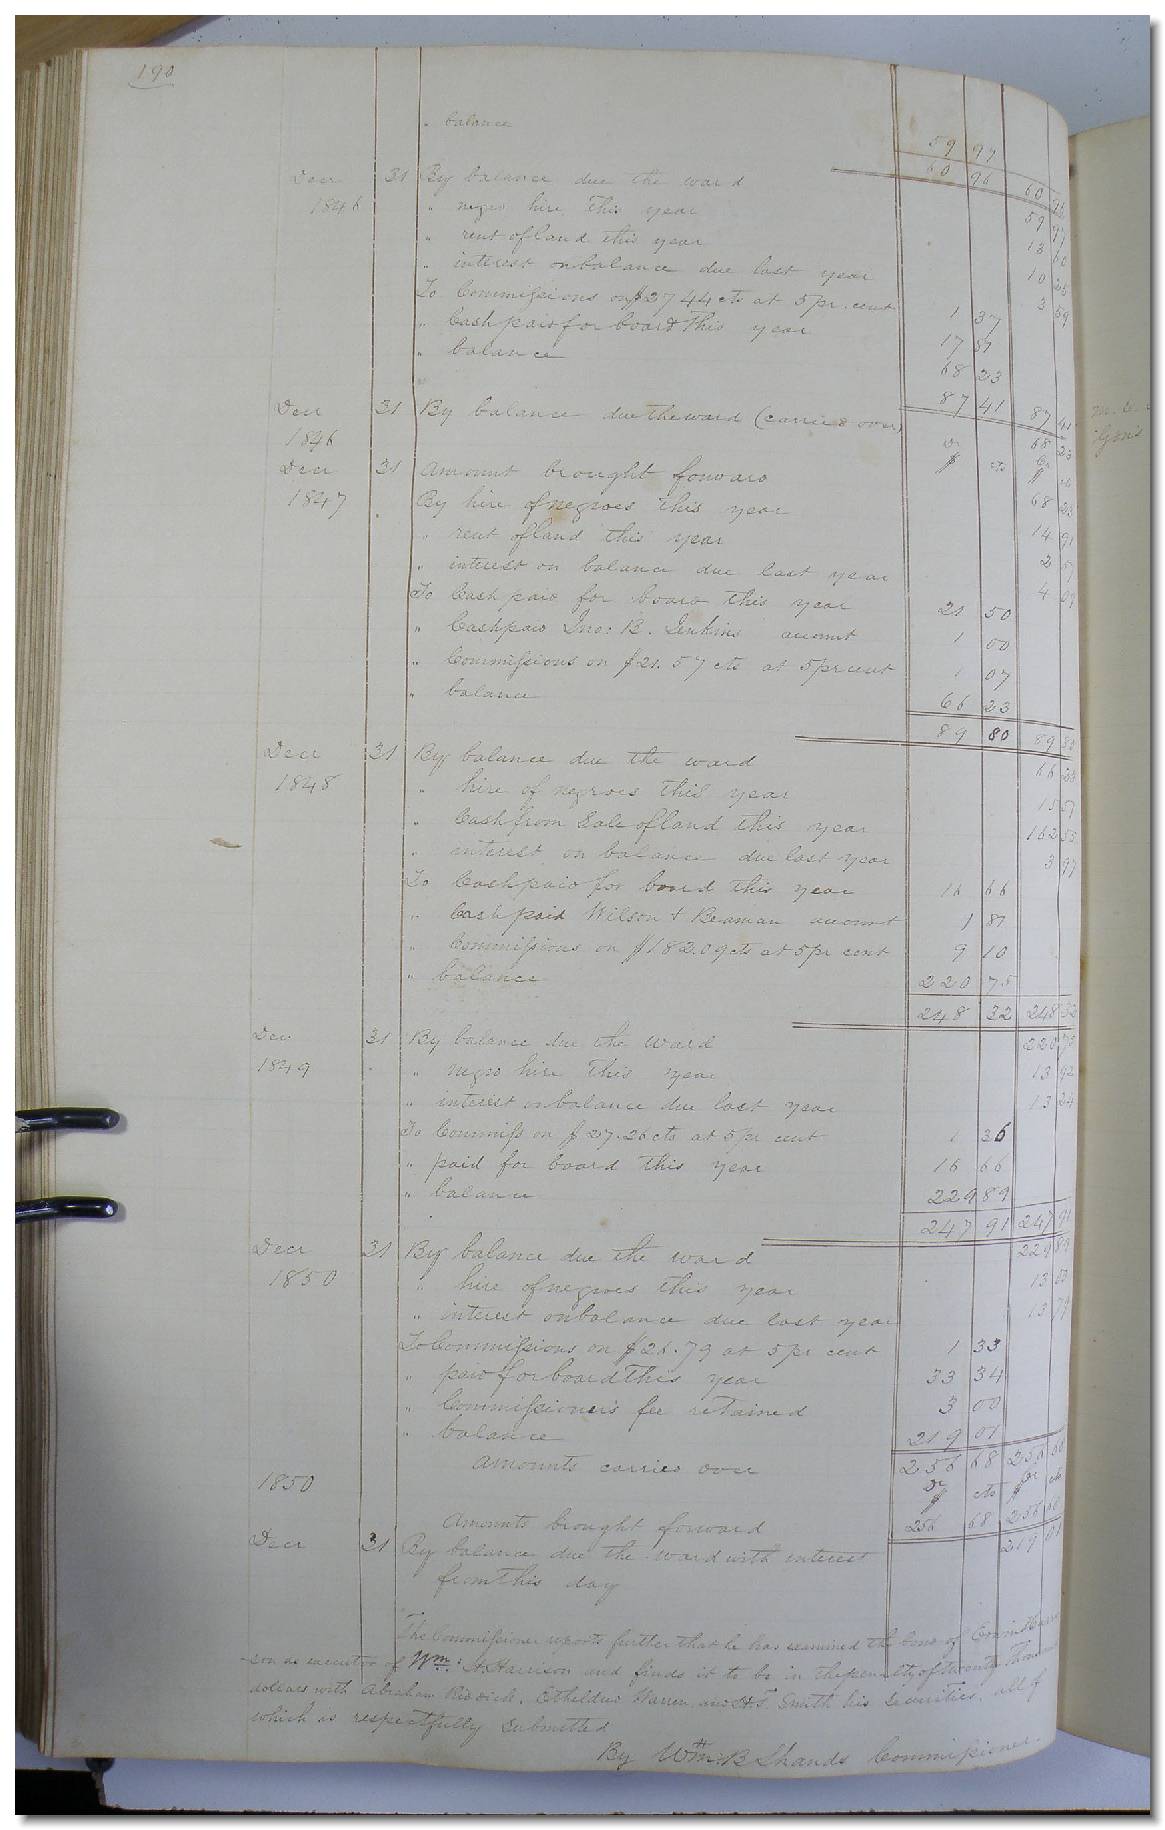 190
" balance 59 97
60 96 60 96
Decr 31 By balance due the ward 59 97
1846 " negro hire this year
" rent of land this year 10 25
" interest on balance due last year 3 59
To Commissions on $27 44 cts at 5 pr. cent 1 37
" Cash paid for board this year 17 81
" balance 68 23
87 41 87 41
Decr 31 By balance due the ward (carried over) 68 23
1846 Dr $ cts Cr $ cts
Decr 31 Amount brought forward 68 23
1847 By hire of negroes this year 14 91
" rent of land this year 2 57
" interest on balance due last year 4 09
To Cash paid for board this year 21 50
" Cash paid Jno: B. Jenkins account 1 00
" Commissions on $21.57 cts at 5 pr cent 1 07
" balance 66 23
89 80 89 80
Decr 31 By balance due the ward 66 23
1848 " hire of negroes this year 15 57
" Cash from Sale of land this year 162 55
" interest on balance due last year 3 97
To Cash paid for board this year 16 66
" Cash paid Wilson & Beaman account 1 81
" Commissions on $182.09 cts at 5 pr cent 9 10
" balance 220 75
248 32 248 32
Dec 31 By balance due the ward 220 75
1849 " negro hire this year 13 92
" interest on balance due last year 13 24
To Commiss on $27.26 cts at 5 pr cent 1 36
" paid for board this year 16 66
" balance 229 89
247 91 247 91
Decr 31 By balance due the ward 229 89
1850 " hire of negroes this year 13 00
" interest on balance due last year 13 79
To Commissions on $26.79 at 5 pr cent 1 33
" paid for board this year 33 34
" Commissioner's fee retained 3 00
" balance 219 01
Amounts carried over 256 68 256 68
1850 Dr $ cts Cr $ cts
Amounts brought forward 256 68 256 68
Decr 31 By balance due the ward with interest 219 01
from this day
The Commissioner reports further that he has examined the bond of
son as executor of Wm: H. Harrison and finds it to be in the penalty of twenty thousand
dollars with Abraham Riddick, Etheldred Warren and H. T. Smith his securities, all of
which is respectfully submitted
By Wm. B Shands Commissioner.